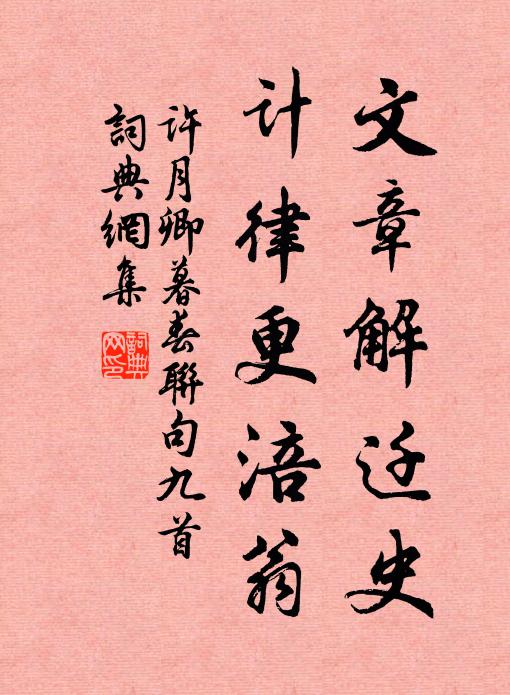 文章解迁史
计律更涪翁
許月卿暮春聯句九首
詞典網集
詞典网印